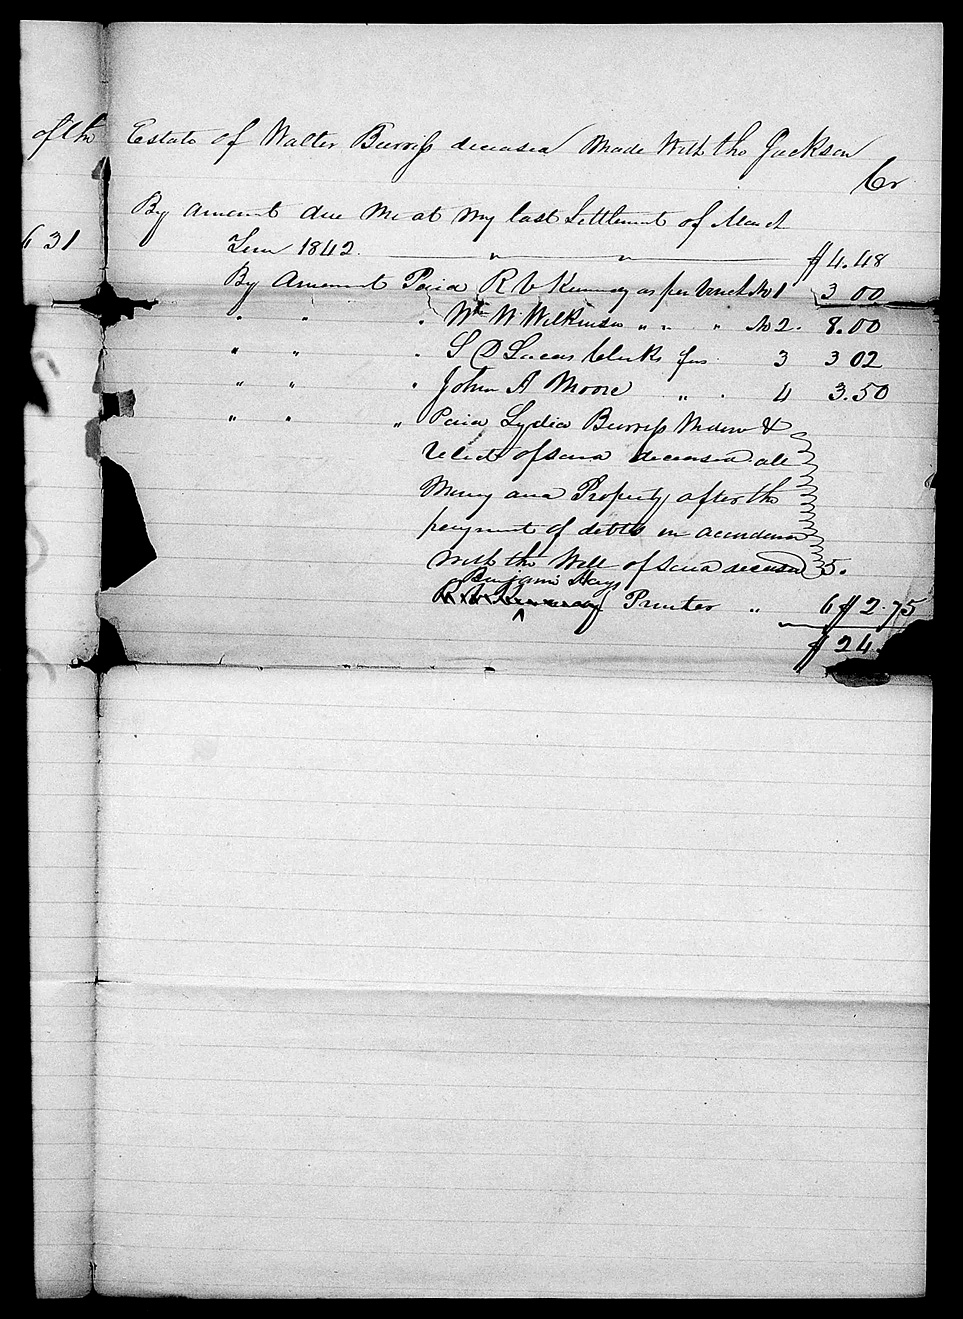 of the Estate of Walter Burriss deceased Made With the Jackson
Cr
By Amount due Me at My last Settlement of March
631
Term 1842. $4.48
By Amount Paid R C Kennedy as per Vouch No 1 3 00
" " " Wm W Wilkinson " " " No 2. 8.00
" " " S D Lucas Clerks fees 3 3 02
" " " John A Moore " " 4 3.50
" " " Paid Lydia Burriss Widow &
relict of said deceased all
Money and Property after the
payment of debts in accordance
With the Will of said deceased 5.
Benjamin Hays
R C Kennedy Printer " 6 $ 2.75
$ 24.